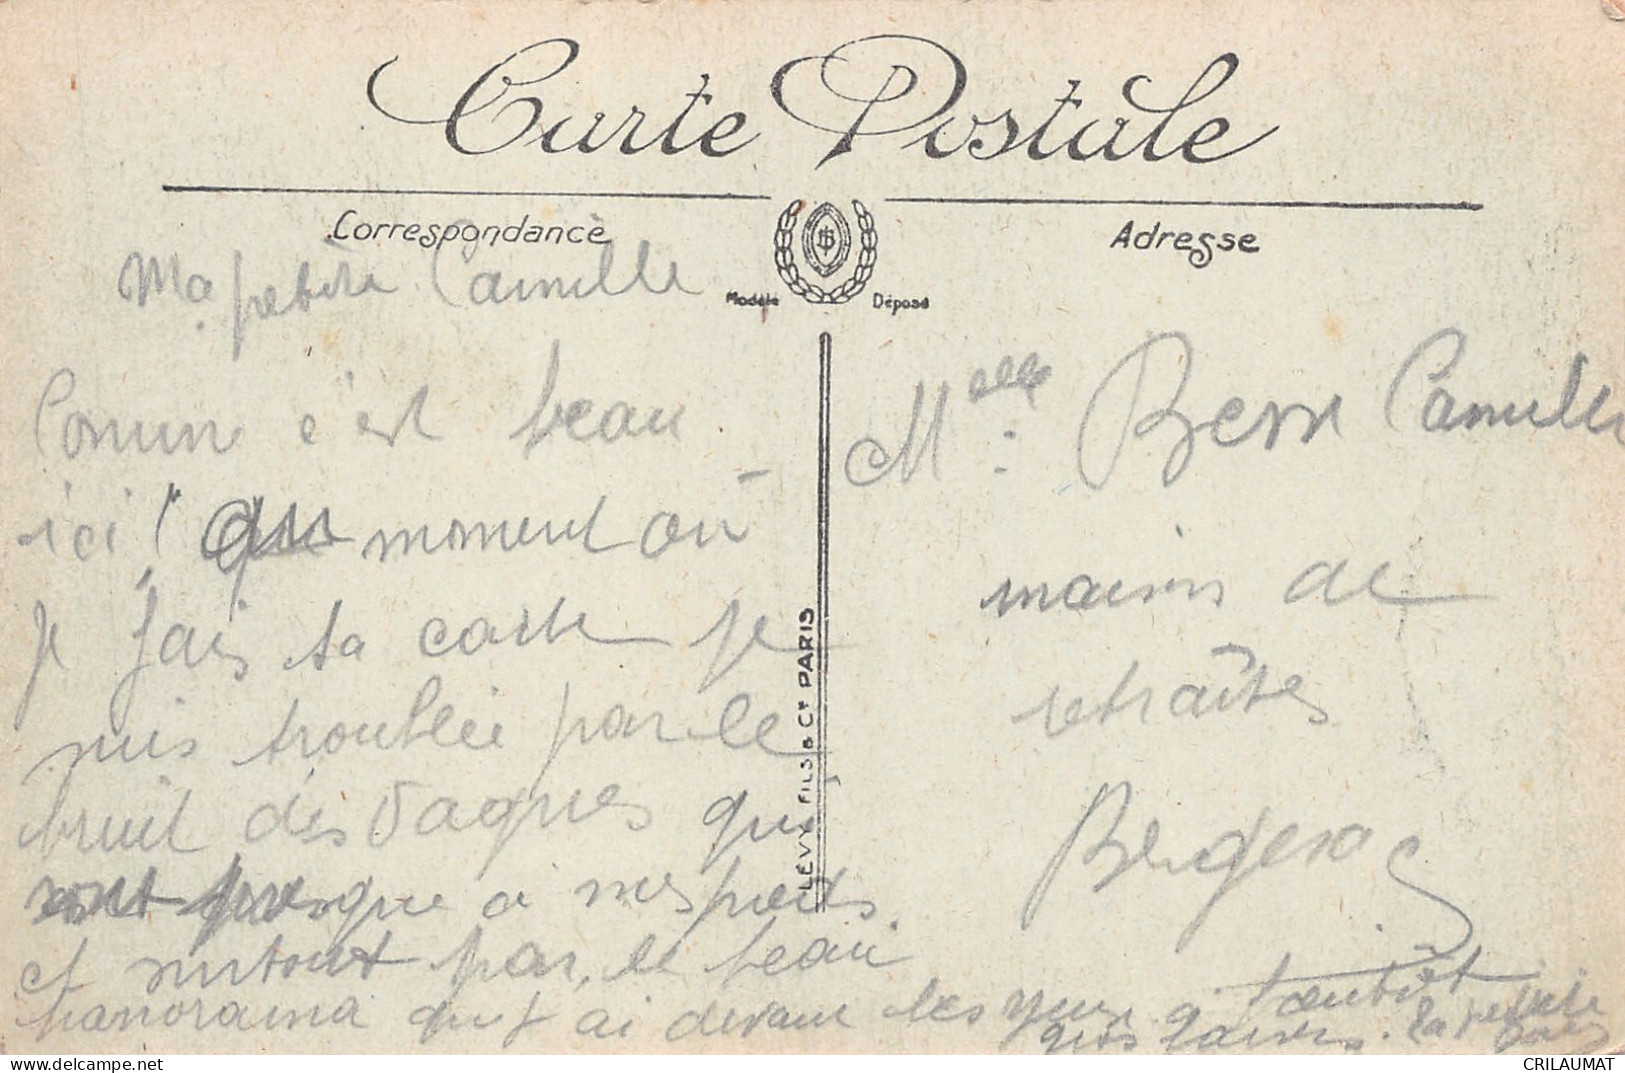 Carte Postale
Correspondance
Adresse
Modèle Déposé
LÉVY FILS & Cie PARIS
Ma petite Camille
Comme c'est beau
ici! au moment où
je fais ta carte je
suis troublée par le
bruit des vagues qui
sont presque à mes pieds
et surtout par le beau
panorama que j'ai devant les yeux
à bientôt
gros baisers. Ta petite
Melle: Camille
maison de
retraîtes
Bergerac
CRILAUMAT